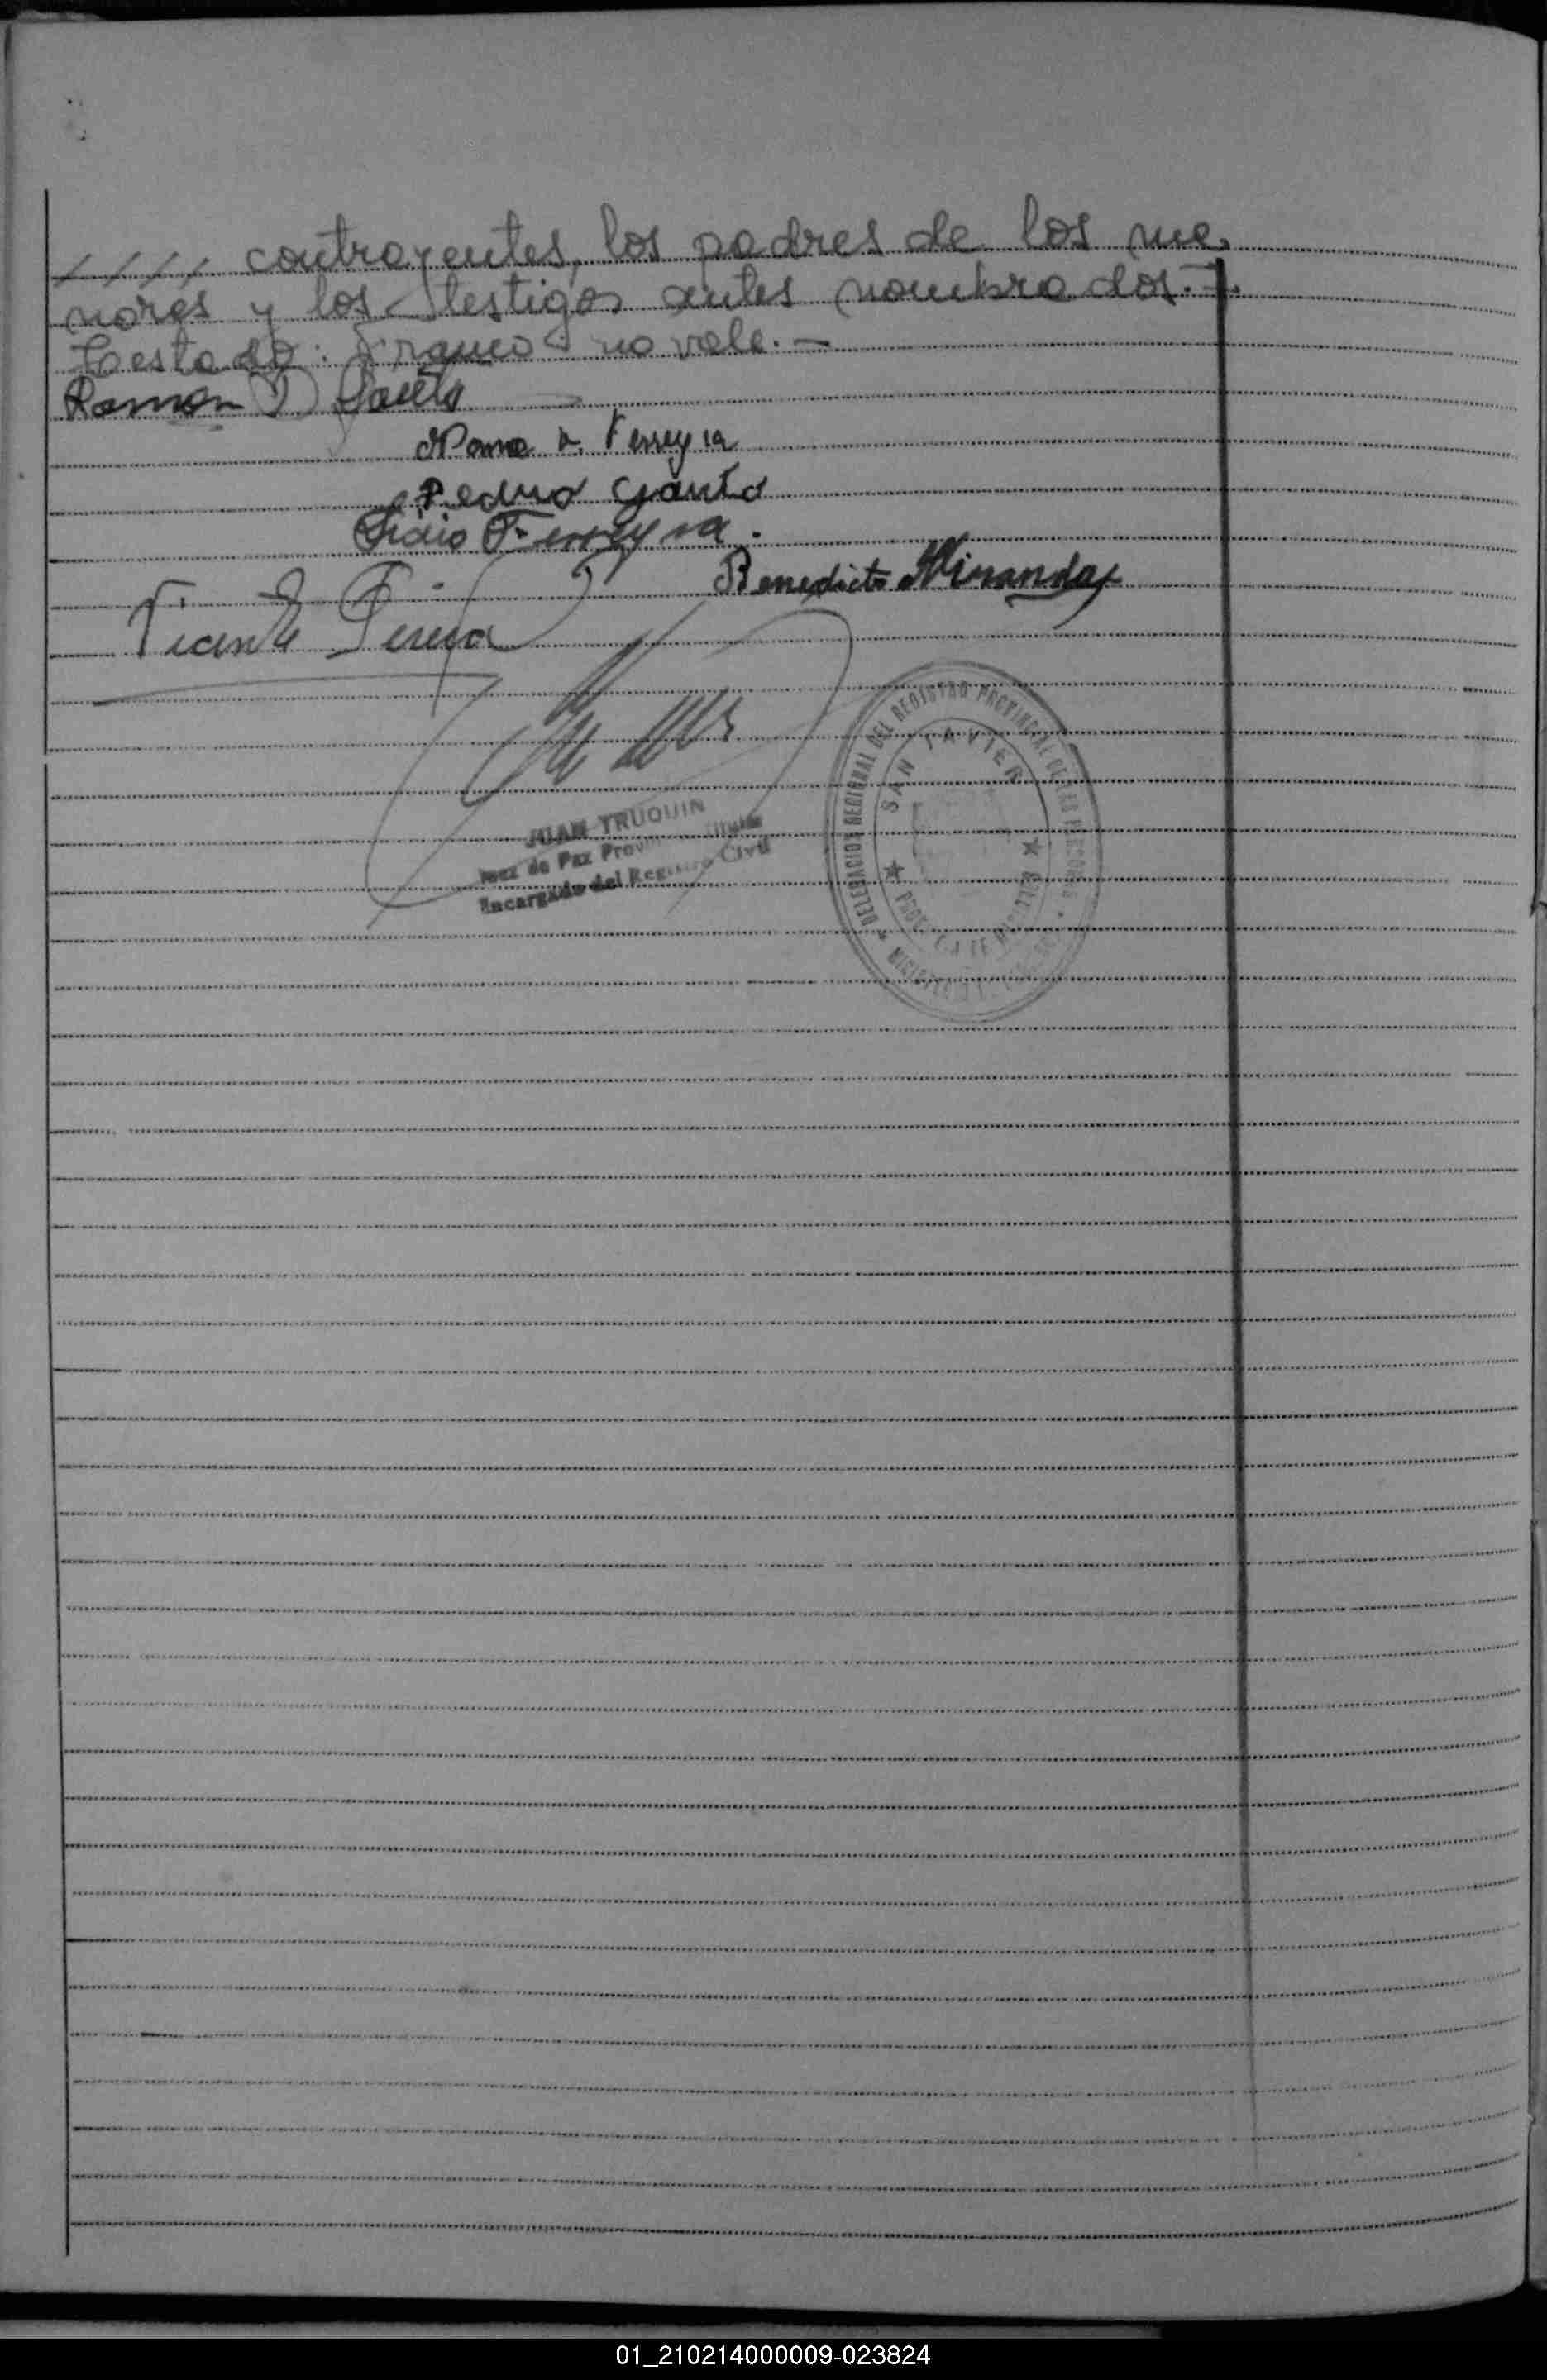 //// contrayentes, los padres de los me-
nores y los testigos antes nombrados.-
Testado: Franco no vale.-
Ramon D Santo
Norma F. Ferreyra
Pedro Santo
Lidio Ferreyra.
Benedicto Miranda
Vicente
JUAN TRUQUIN
Juez de Paz
Encargado del Registro Civil
DELEGACION REGIONAL DEL REGISTRO PROVINCIAL DE LAS PERSONAS
SAN JAVIER
01_210214000009-023824